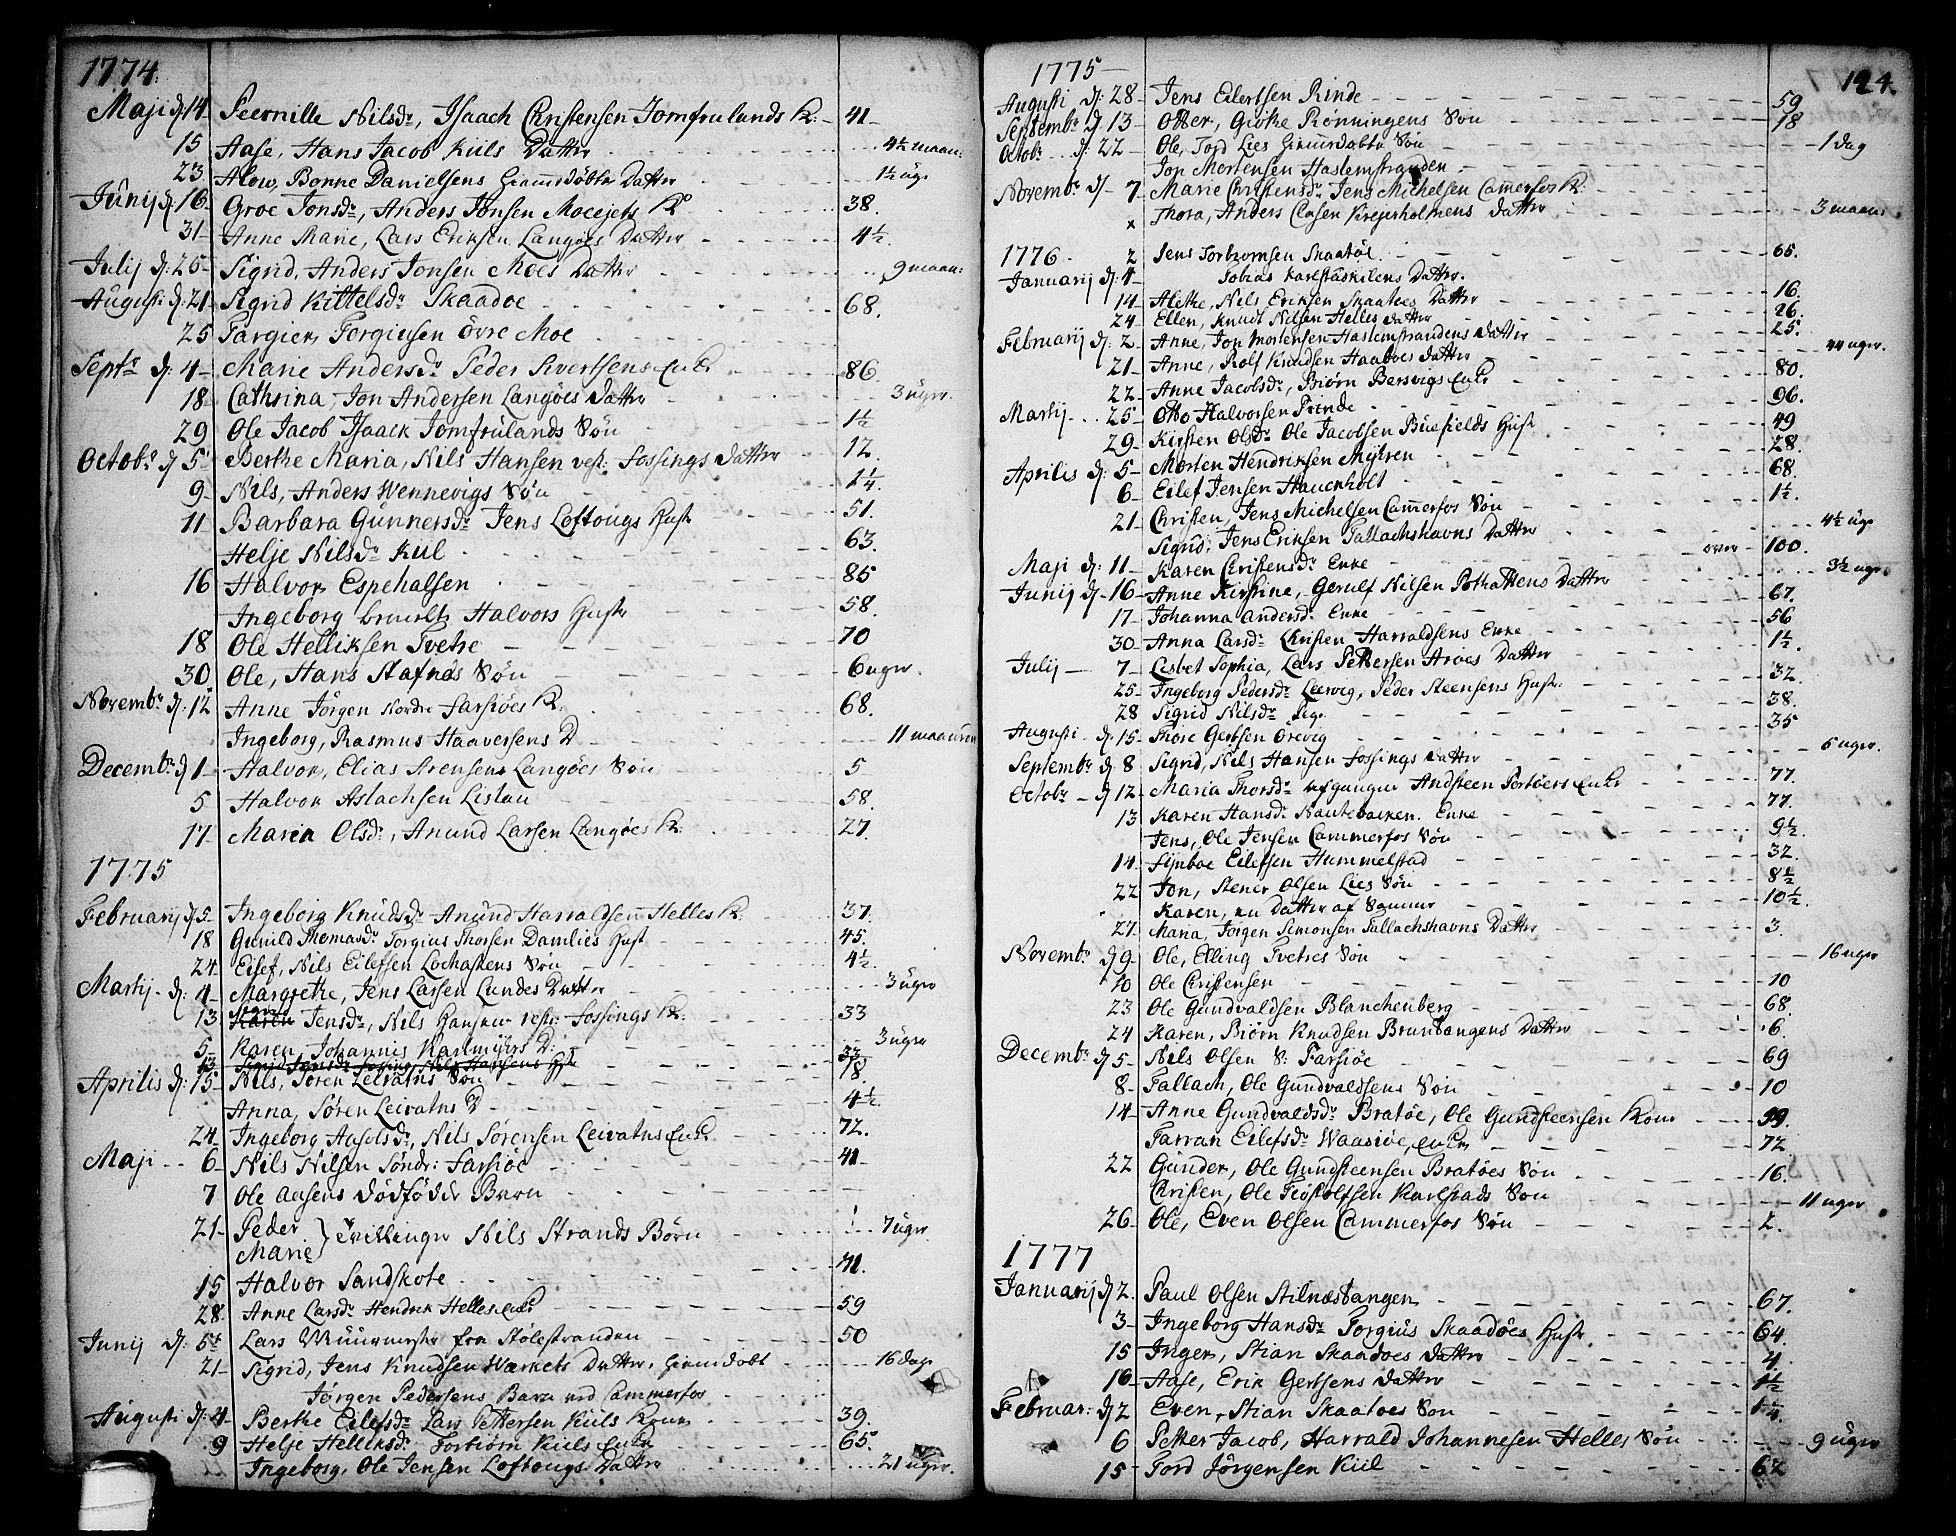 1774.
Maji d. 14 Peernille Nilsdr, Isaach Christensen Jomfrulands K: 41
15 Aase, Hans Jacob Kiils Datter 4½ maan:
23 Alow, Bonne Danielsens hiemdöbte Datter 1½ uge
Junij d. 16 Groe Jonsdr, Anders Jonsen Mocejets K 38.
31 Anne Marie, Lars Eriksen Langöes Datter 4½.
Julij d: 25 Sigrid, Anders Jonsen Moes Datter 9 maan:
Augusti d: 21 Sigrid Kittelsdr Skaadoe 68.
25 Targier Torgiusen övre Moe
Septr d: 4 Marie Andersdr Peder Sivertsens Enke 86.
18 Cathrina, Jon Andersen Langöes Datter 3 uger.
29 Ole Jacob Isaack Jomfrulands Sön 1½
Octobr d 5 Berthe Maria, Nils Hansen vest: Fossings Datter 12.
9 Nils, Anders Wennevigs Sön 1¼.
11 Barbara Gunnersdr Jens Loftougs Hust 51.
Helje Nilsdr Kiil 63.
16 Halvor Espehalsen 85
Ingeborg bemeldte Halvors Hustr 58.
18 Ole Helliksen Tvetre 70
30 Ole, Hans Stafnæs Sön 6 uger.
Novembr d: 12 Anne Jörgen Nordre Farsiöes K: 68.
Ingeborg, Rasmus Haaversens D 11 maaner
Decembr d 1 Halvor, Elias Arensens Langöes Sön 5
5 Halvor Aslachsen Listau 58.
17 Maria Olsdr, Anund Larsen Langöes K: 27.
1775
Februarij d 5 Ingeborg Knudsdr Anund Harraldsen Helles K. 37.
18 Gunild Thomasdr Torgius Thorsen Damlies Hust 45.
24 Eilef, Nils Eilefsen Lochastens Sön 4½
Martij d: 4 Margrethe, Jens Larsen Lundes Datter 3 uger
13 Karen Sigrid Jensdr, Nils Hansen vestr: Fossings K: 33
5 Karen Johannis Karlmyhrs D: 3 uger
13 Sigrid Jensdr Fosing Nils Hansens Hst 33
Aprilis d: 15 Nils, Sören Leivatns Sön 18.
Anna, Sören Leivatns D 4½.
24 Ingeborg Aasolsdr, Nils Sörensen Leivatns Enke 72.
Maji 6 Nils Nilsen Söndr: Farsiöe 41
7 Ole Aasens dödfödde Barn
21 Peder Marie } Tvillinger Nils Strands Börn 7 uger
15 Halvor Sandskote 41.
28 Anne Larsdr Hendrik Helles Enke 59
Junij d: 5 Lars Muurmester fra Stölestranden 50
21 Sigrid, Jens Knudsen Værkets Datter, hiemdöbt 16 dage
Jörgen Pedersens Barn ved Cammerfos
Augusti d: 4 Berthe Eilefsdr Lars Pettersen Kiils Kone 39.
9 Helje Helliksdr Torbiörn Kiils Enke 65.
Ingeborg, Ole Jensen Loftougs Datter 21 uger.
124.
1775
Augusti d: 28 Jens Eilertsen Rinde 59
Septembr d. 13 Otter, Giöthe Rönningens Sön 18
Octobr d: 22 Ole, Tord Lies hiemdöbte Sön 1 dag
Jon Mortensen Haslemstranden
Novembr d 7 Marie Christensdr Jens Michelsen Camerfos K:
x Thora, Anders Clasen Krejerholmens Datter 3 maan:
1776
2 Jens Torbiornsen Skaatöe 65.
Januarij d: 4 Tobias Karlstaskilens Datter.
14 Alethe, Nils Eriksen Skaatoes Datter 16.
24 Ellen, Knudt Nilsen Helles Datter 26.
Februarij d: 2 Anne, Jon Mortensen Haslemstrandens Datter 25.
21 Anne, Rolf Knudsen Haatoes Datter 44 uger.
22 Anne Jacobsdr, Biörn Bersvigs Enke 80.
Martij 25 Otto Halvorsen Rinde 96.
29 Kirsten Olsdr Ole Jacobsen Büefields Hust 49
Aprilis d: 5 Morten Hendriksen Myhren 28.
6 Eilef Jensen Hauenholt 68.
21 Christen, Jens Michelsen Camerfos Sön 1½.
Sigrid, Jens Eriksen Tallachshavns Datter 4½ uge
Maji d: 11 Karen Christensdr Enke over 100.
Junij d. 16 Anne Kirstine, Gerulf Nilsen Pothattens Datter 3½ uge
17 Johanna Andersdr Enke 67.
30 Anna Larsdr Christen Harraldsens Enke 56
Julij 7 Lisbet Sophia, Lars Pettersen Aröes Datter 1½.
25 Ingeborg Pedersdr Leerveg, Peder Steensens Hust: 32.
28 Sigrid Nilsdr 38.
Augusti d. 15 Thore Gertsen Örevig 35
Septembr d 8 Sigrid, Nils Hansen Fossings Datter 6 uger.
Octobr d 12 Maria Thorsdr afgangne Andsteen Portöers Enke 77.
13 Karen Hansdr Nautebacken Enke 77.
Jens, Ole Jensen Cammerfos Sön 9½.
14 Synboe Eilefsen Hummelstad 32.
22 Jon, Stener Olsen Lies Sön 8½
Karen, en Datter af Samme 10½.
27 Maria, Jörgen Simonsen Tallachshavns Datter 3.
Novembr d 9 Ole, Elling Tvetres Sön 16 uger
10 Ole Christensen 10
23 Ole Gundvaldsen Blanchenberg 68.
24 Karen, Biörn Knudsen Bruntangens Datter 6.
Decembr d 5 Nils Olsen N: Farsiöe 69
8 Tallach, Ole Gundvaldsens Sön 10
14 Anne Gundvaldsdr Bratöe, Ole Gundsteensen Kone 59.
Tarran Eilefsdr Waasiöe, Enke 72
22 Gunder, Ole Gundsteensen Bratöes Sön 16.
Christen, Ole Tiöstolfsen Karlstads Sön 11 uger
26 Ole, Even Olsen Cammerfos Sön 2.
1777
Januarij d 2. Paul Olsen Stilnæstangen 67.
3 Ingeborg Hansdr Torgius Skaadöes Hustr 64.
15 Inger, Stian Skaadoes Datter 4.
16 Aase, Erik Gertsens Datter 1½
Februar: d 2 Even, Stian Skaatoes Sön 1¼.
6 Petter Jacob, Harrald Johannesen Helles Sön 9 uger
15 Tord Jörgensen Kiil 62